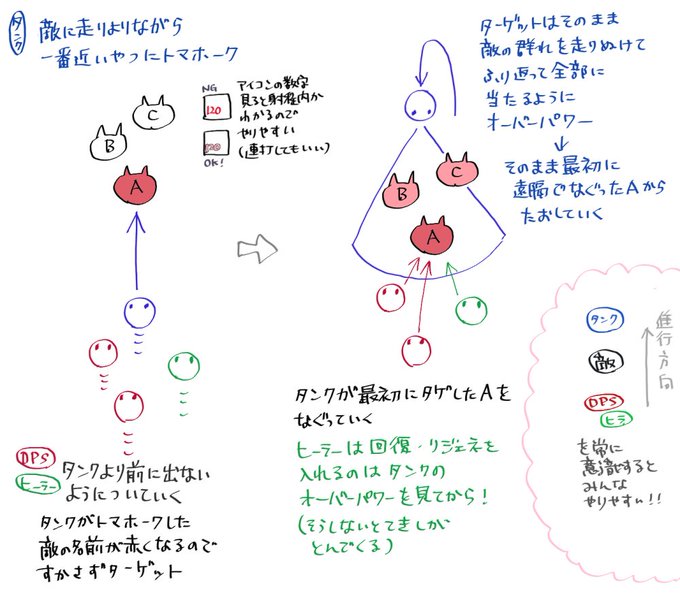 タンク
敵に走りよりながら
一番近いやつにトマホーク
NG
120
120
OK!
アイコンの数字
見ると射程内か
わかるので
やりやすい
(連打してもいい)
C
B
A
DPS
ヒーラー
タンクより前に出ない
ようについていく
タンクがトマホークした
敵の名前が赤くなるので
すかさずターゲット
ターゲットはそのまま
敵の群れを走りぬけて
ふり返って全部に
当たるように
オーバーパワー
そのまま最初に
遠隔でなぐったAから
たおしていく
C
B
A
タンクが最初にタゲしたAを
なぐっていく
ヒーラーは回復・リジェネを
入れるのはタンクの
オーバーパワーを見てから!
(そうしないとてきしが
とんでくる)
タンク
敵
DPS
ヒラ
進行方向
を常に
意識すると
みんな
やりやすい!!